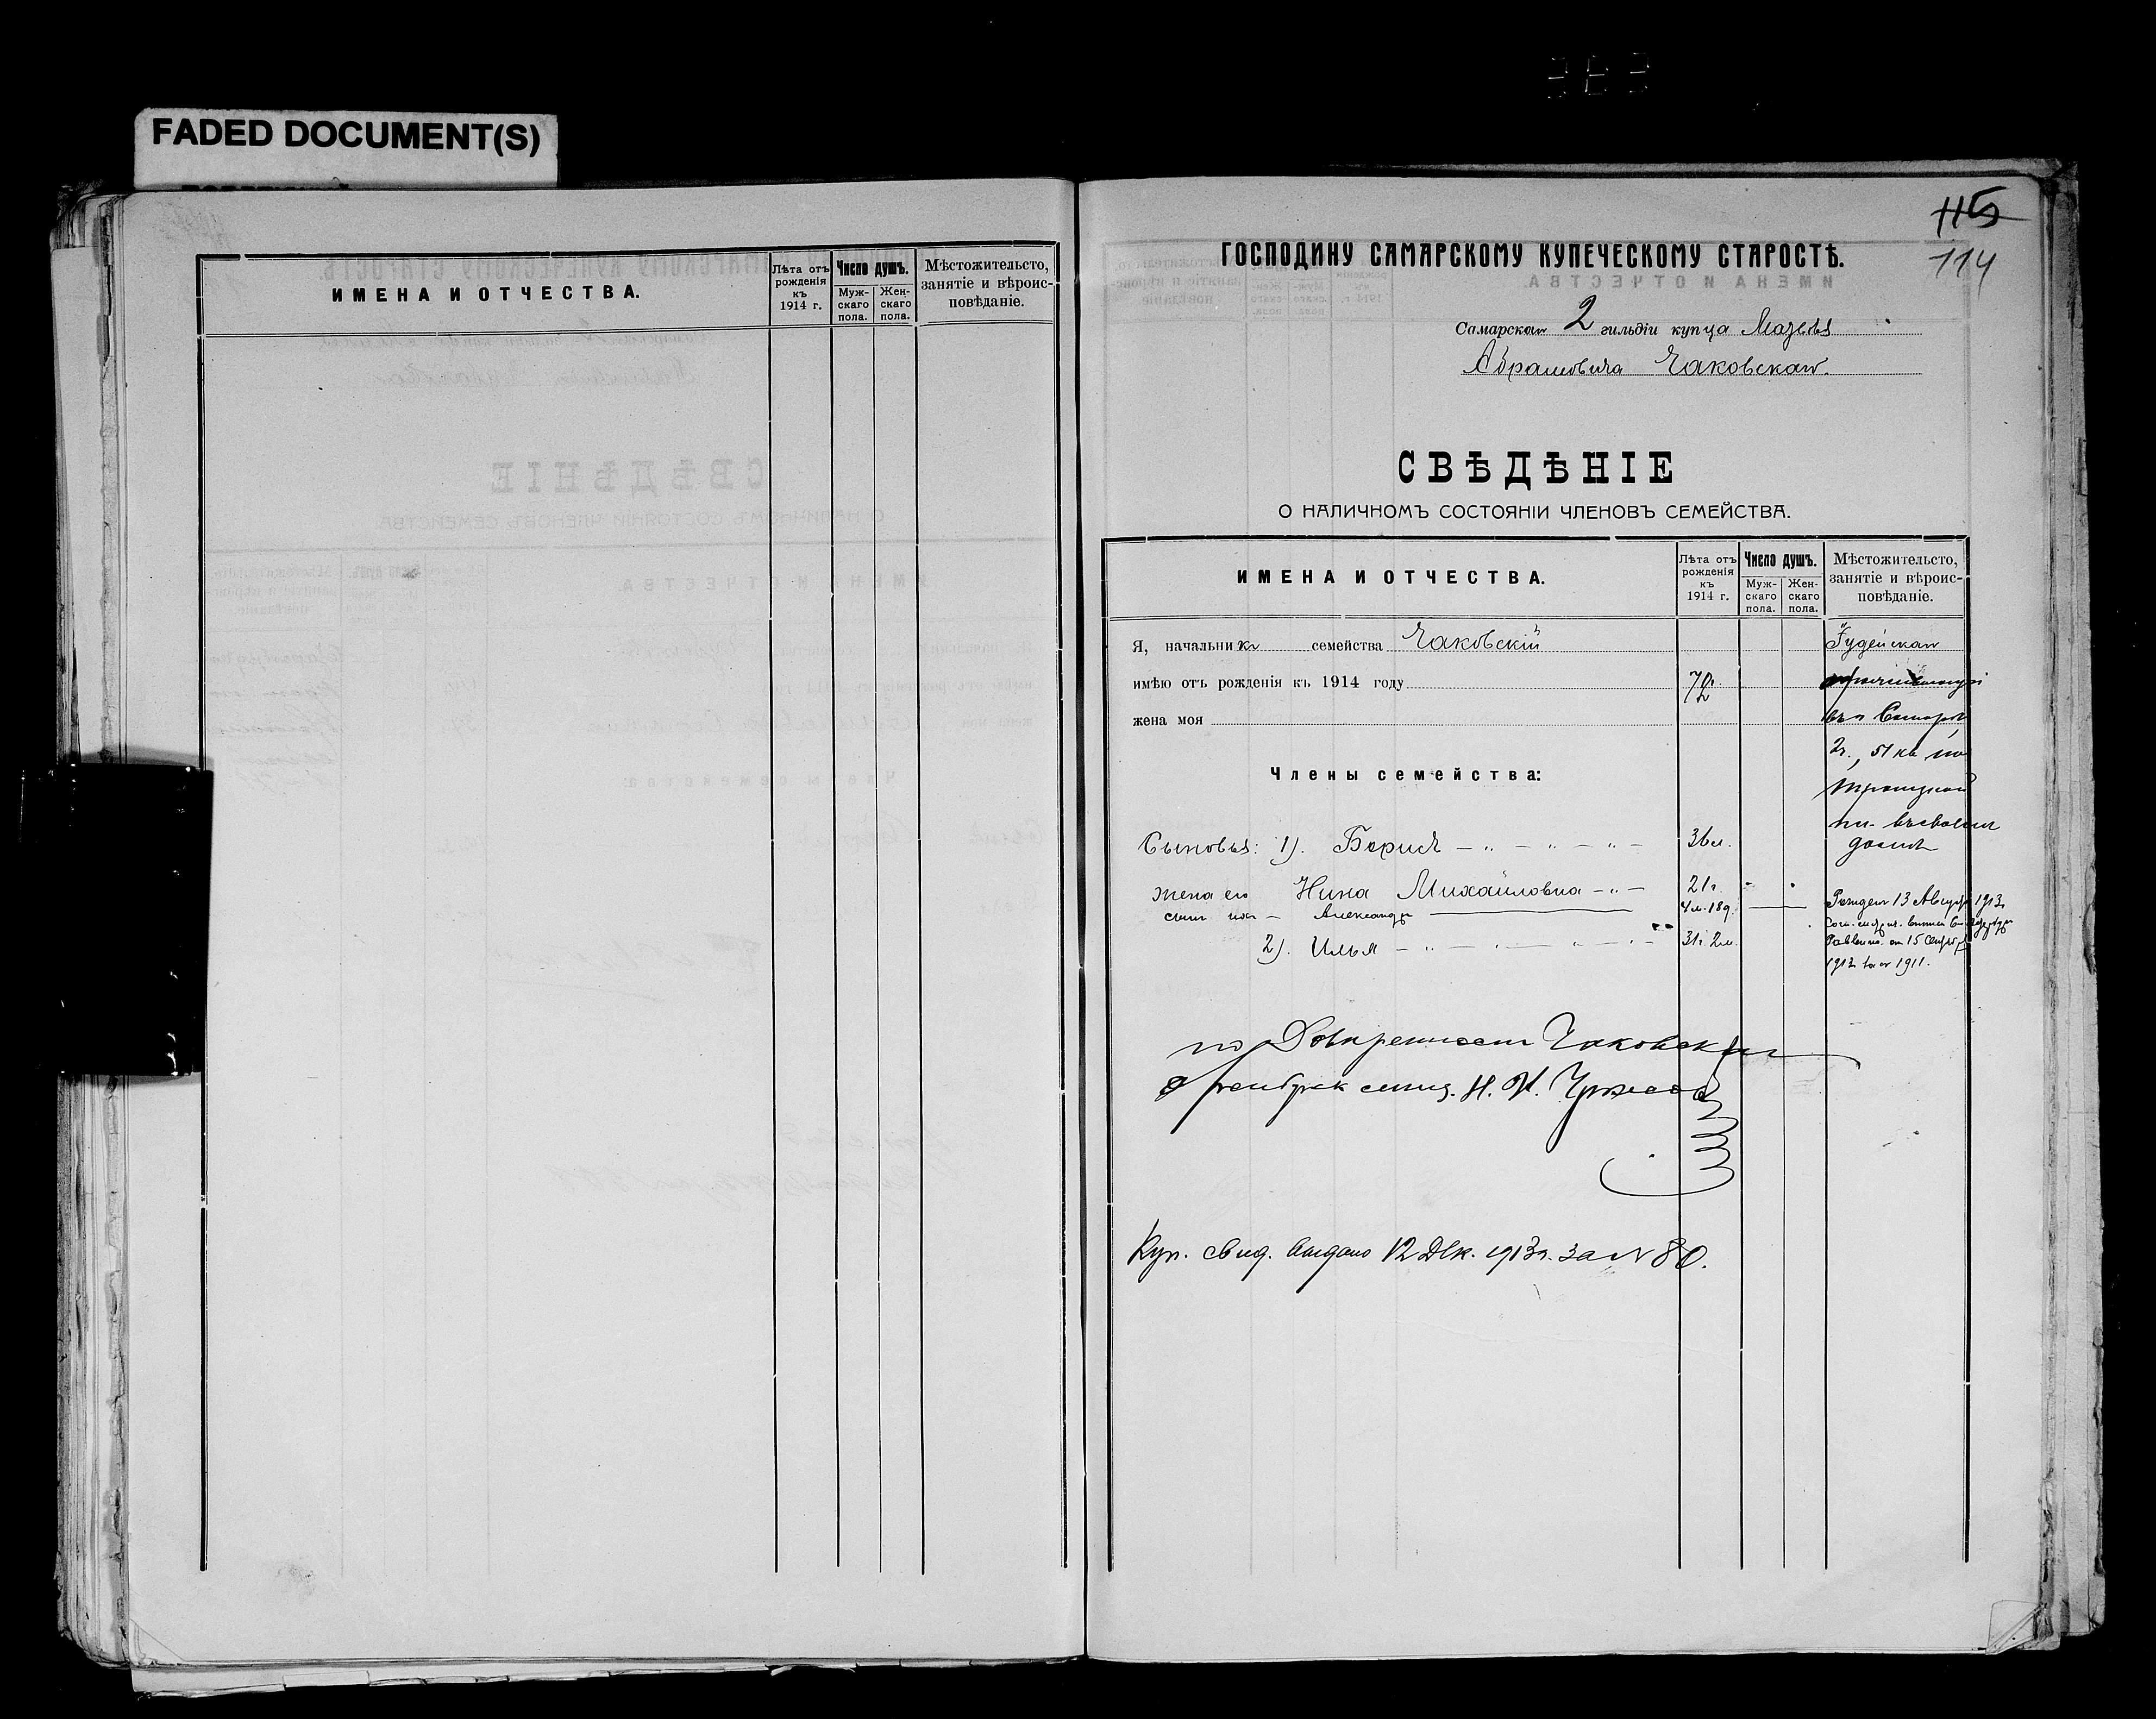 FADED DOCUMENT(S)
ИМЕНА И ОТЧЕСТВА.
Лѣта отъ рожденія къ 1914 г.
Число душъ.
Мужскаго пола.
Женскаго пола.
Мѣстожительсто, занятіе и вѣроисповѣданіе.
115
114
ГОСПОДИНУ САМАРСКОМУ КУПЕЧЕСКОМУ СТАРОСТѢ.
Самарскаго 2 гильдіи купца
Абрамовича Чаковскаго.
СВѢДѢНІЕ
О НАЛИЧНОМЪ СОСТОЯНІИ ЧЛЕНОВЪ СЕМЕЙСТВА.
ИМЕНА И ОТЧЕСТВА.
Лѣта отъ рожденія къ 1914 г.
Число душъ.
Мужскаго пола.
Женскаго пола.
Мѣстожительсто, занятіе и вѣроисповѣданіе.
Я, начальникъ семейства Чаковскій
Іудейскаго
имѣю отъ рожденія къ 1914 году 72
жена моя
въ Самарѣ
2ч., 51 кв. по
Троицкой
ул. въ своемъ
домѣ
Члены семейства:
Сыновья: 1). Борисъ 36 л.
жена его Нина Михайловна 21 г.
сынъ ихъ Александръ 4 м. 18 д.
Рожденъ 13 Августа 1913 г.
2). Илья 31 г. 2 м.
от 15 Сентября
1913 г. за № 1911.
по Доверенности Чаковскаго
Н. И.
Куп. свид. выдано 12 Дек. 1913 г. за № 80.